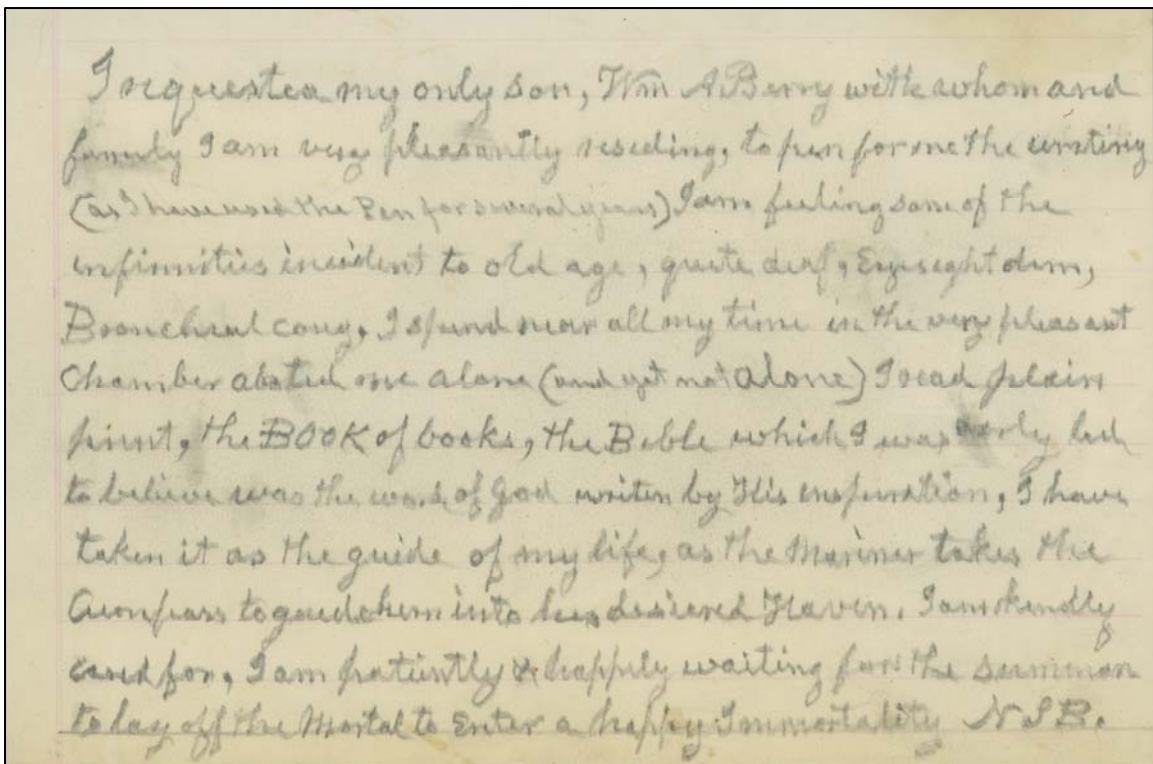 I requested my only son, Wm A Berry with whom and
family I am very pleasantly residing, to pen for me the writing
(as I have used the Pen for several years) I am feeling some of the
infirmities incident to old age, quite deaf, Eyesight dim,
Bronchial coug, I spend near all my time in the very pleasant
Chamber me alone (and yet not alone) I read plain
print, the BOOK of books, the Bible which I was early led
to believe was the word of God writen by His inspiration, I have
taken it as the guide of my life, as the Mariner takes the
Compass to guid him into his desiered Haven. I am kindly
cared for, I am patiently & happily waiting for the summon
to lay off the Mortal to Enter a happy Immortality N S B.